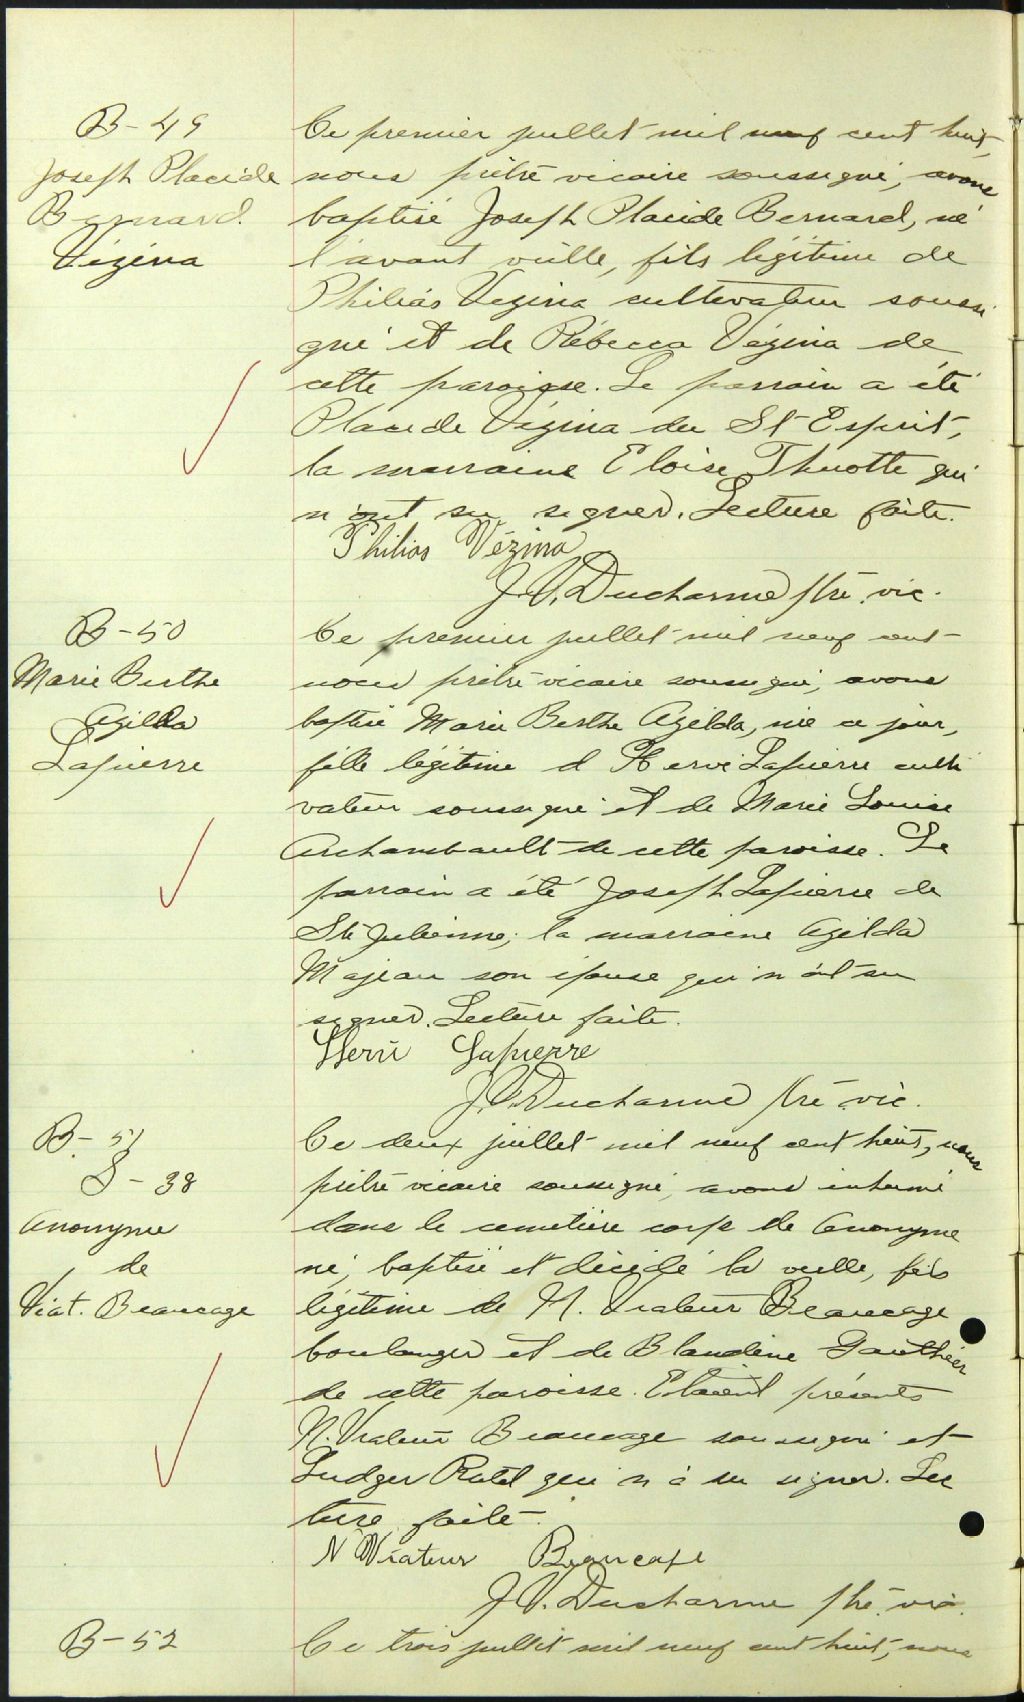 B-49
Joseph Placide
Bernard
Vézina
Ce premier juillet mil neuf cent huit,
nous prêtre vicaire soussigné, avons
baptisé Joseph Placide Bernard, né
l'avant veille, fils légitime de
Philias Vézina cultivateur soussi
gné et de Rébecca Vézina de
cette paroisse. Le parrain a été
Placide Vézina de St Esprit,
la marraine Eloise Thuotte qui
n'ont su signer. Lecture faite.
Philias Vézina
J. V. Ducharme ptre. vic.
B-50
Marie Berthe
Azilda
Lapierre
Ce premier juillet mil neuf cent
nous prêtre vicaire soussigné, avons
baptisé Marie Berthe Azilda, née ce jour,
fille légitime d'Hervé Lapierre culti
vateur soussigné et de Marie Louise
Archambault de cette paroisse. Le
parrain a été Joseph Lapierre de
Ste Julienne; la marraine Azilda
Majeau son épouse qui n'ont su
signer. Lecture faite.
Lapierre
J. V. Ducharme ptre vic.
B-51
S-38
Anonyme
de
Viat. Beaucage
Ce deux juillet mil neuf cent huit, nous
prêtre vicaire soussigné, avons inhumé
dans le cimetière corps de Anonyme
né, baptisé et décédé la veille, fils
légitime de N. Viateur Beaucage
boulanger et de Blandine Gauthier
de cette paroisse. Etaient présents
N. Viateur Beaucage soussigné et
Ludger Ratel qui n'a su signer. Lec
ture faite.
N Viateur Beaucage
J. V. Ducharme ptre. vic.
B-52
Ce trois juillet mil neuf cent huit, nous